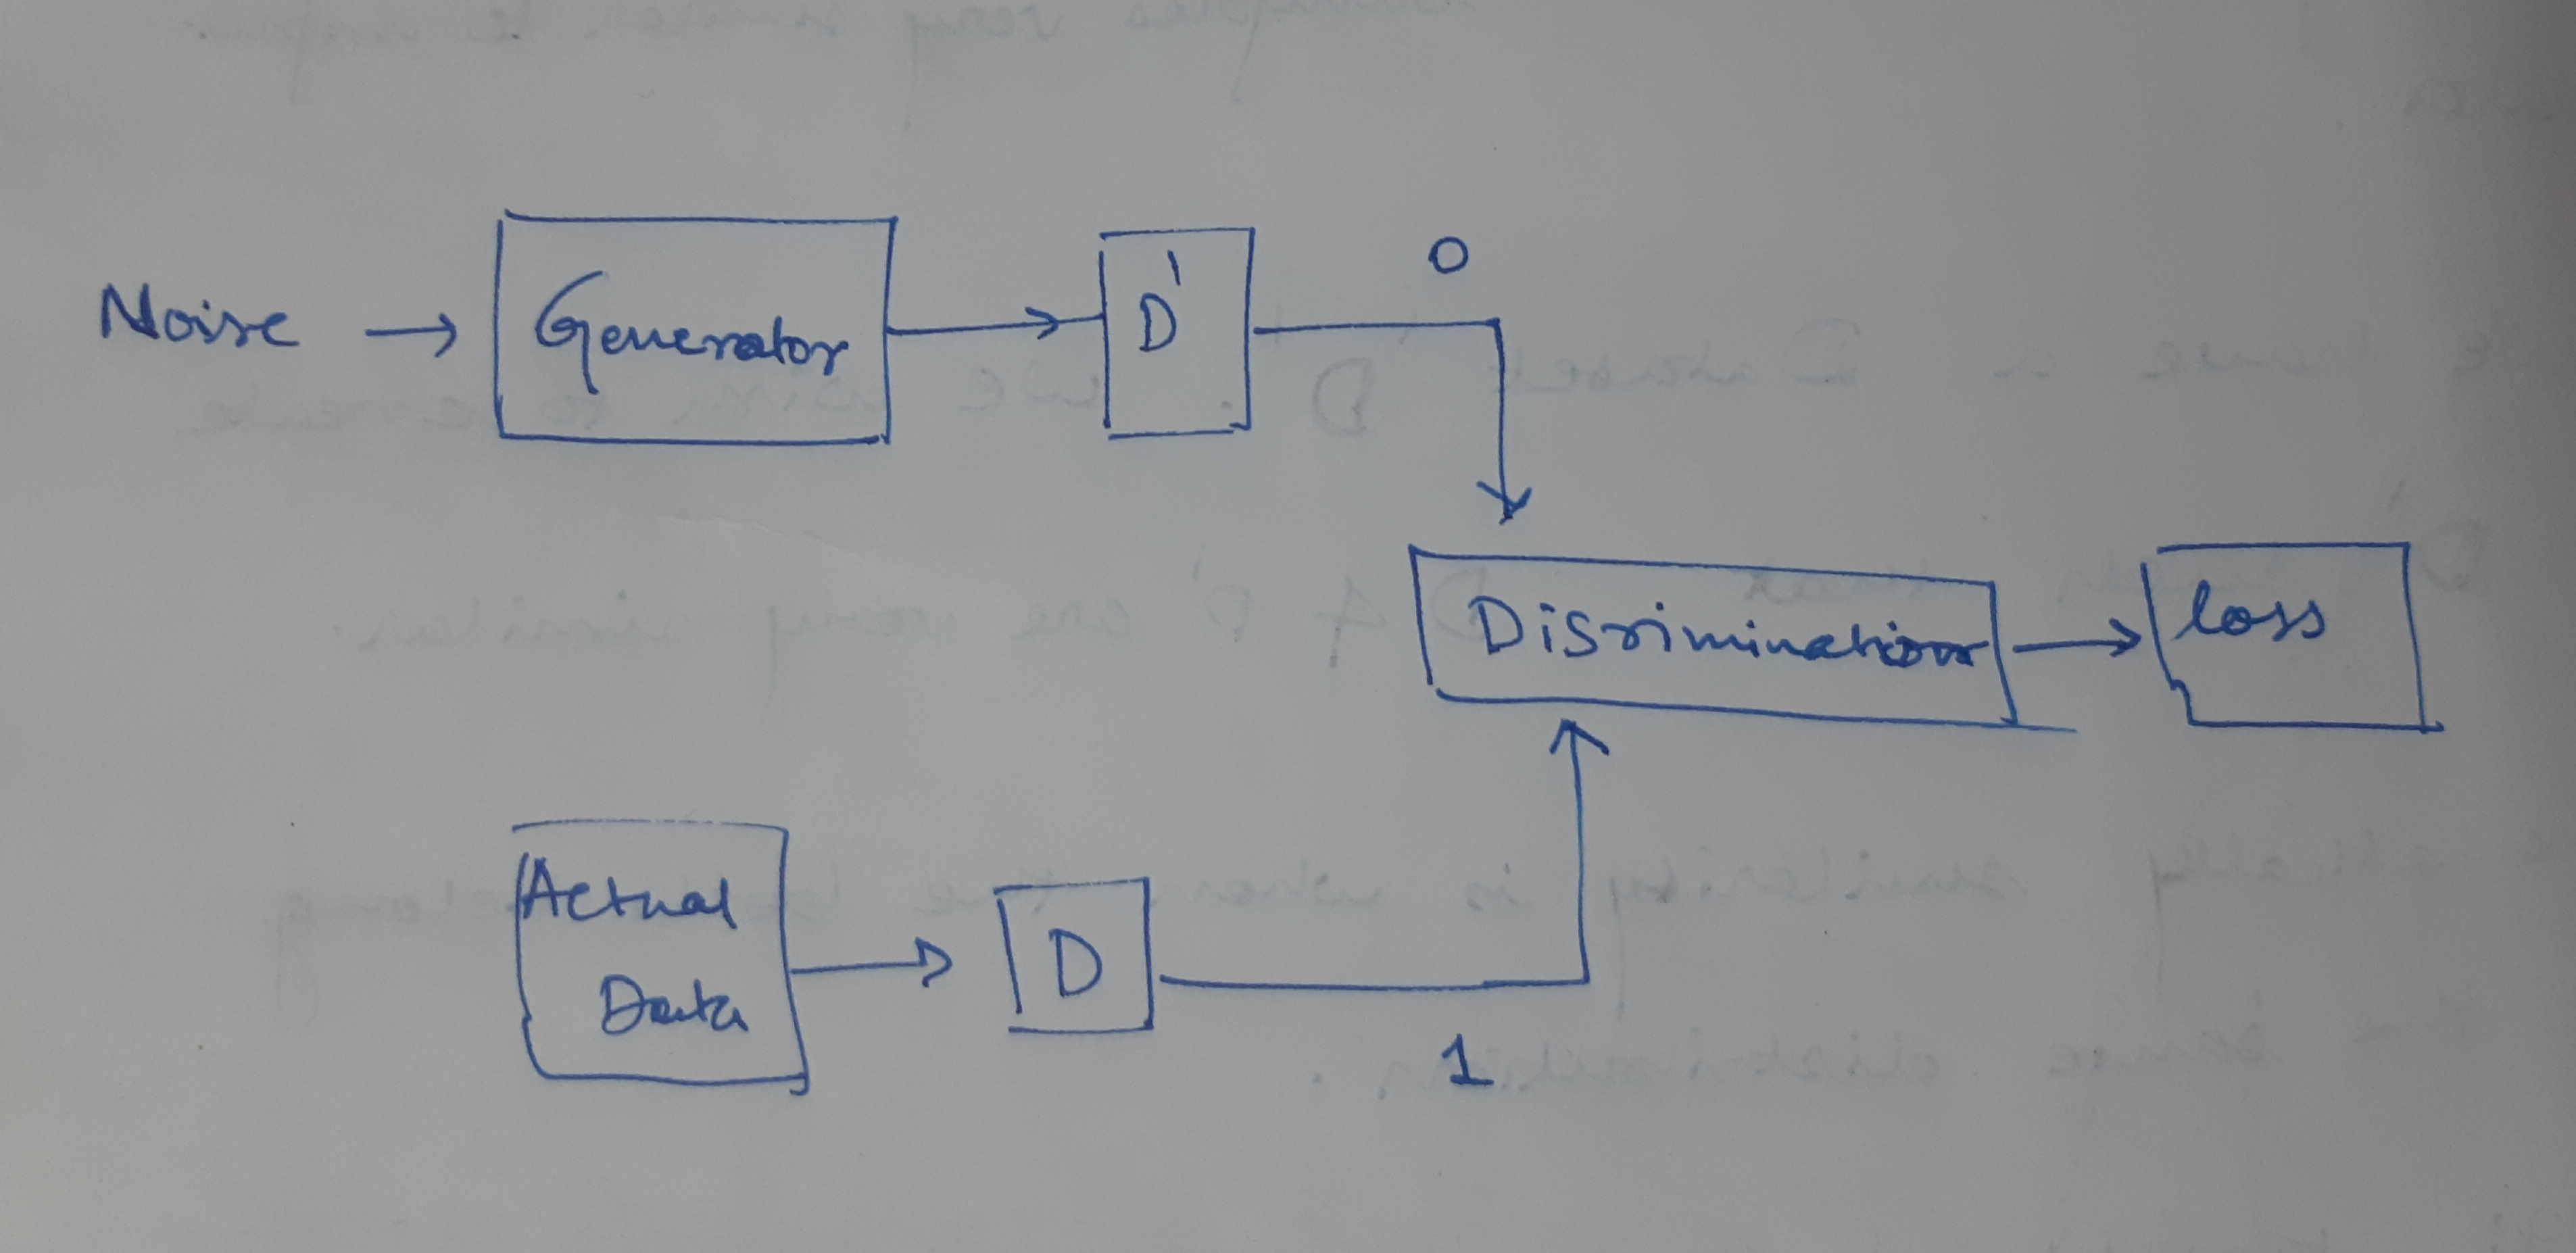 0
Noise → Generator → D'
Disriminatior → loss
Actual
Data → D
1